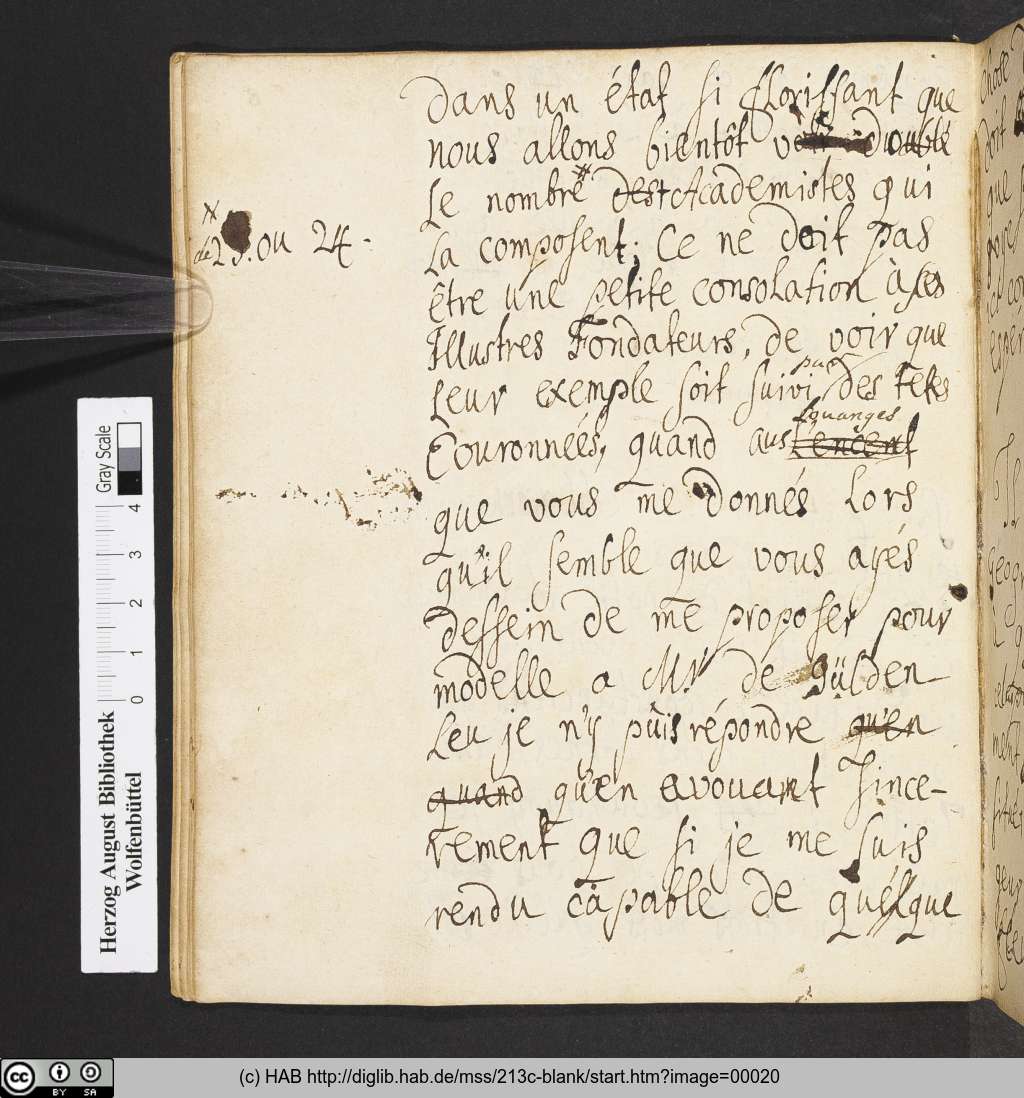 Dans un état si florissant que
nous allons bientôt doublé
le nombre # des Academistes qui
# de 23. ou 24.
la composent; Ce ne doit pas
être une petite consolation à ses
Illustres Fondateurs, de voir que
leur exemple soit suivi par des têtes
Couronnées, quand aus louanges l'encent
que vous me donnés lors
qu'il semble que vous ayés
dessein de me proposer pour
modelle a Mr de Gülden-
leu je n'y puis répondre qu'en
quand qu'en avouant since-
rement que si je me suis
rendu capable de quélque
Gray Scale
4
3
2
1
0
Herzog August Bibliothek
Wolfenbüttel
cc BY SA
(c) HAB http://diglib.hab.de/mss/213c-blank/start.htm?image=00020